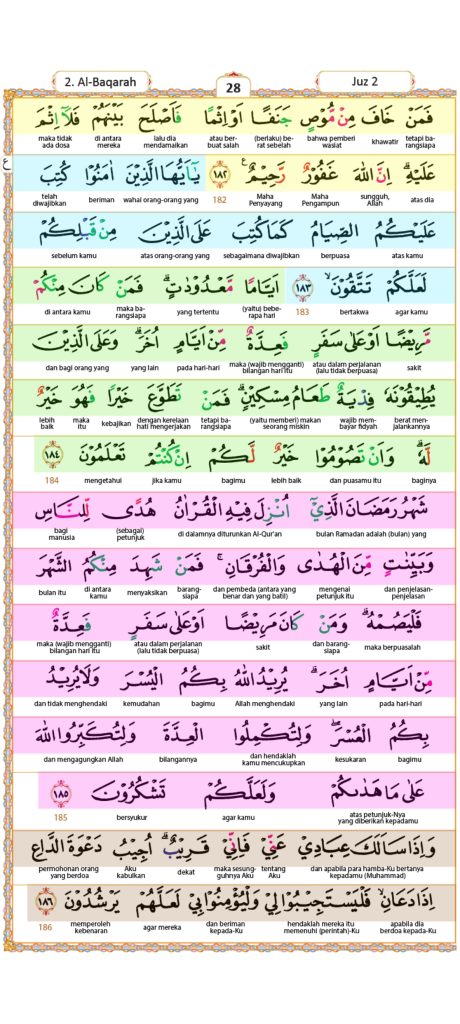 2. Al-Baqarah
28
Juz 2
فَمَنْ خَافَ مِنْ مُّوْصٍ جَنَفًا اَوْ اِثْمًا فَاَصْلَحَ بَيْنَهُمْ فَلَآ اِثْمَ
tetapi barangsiapa khawatir bahwa pemberi wasiat (berlaku) berat sebelah atau berbuat salah lalu dia mendamaikan di antara mereka maka tidak ada dosa
ع
عَلَيْهِۗ اِنَّ اللّٰهَ غَفُوْرٌ رَّحِيْمٌ ۝١٨٢ يٰٓاَيُّهَا الَّذِيْنَ اٰمَنُوْا كُتِبَ
atas dia sungguh, Allah Maha Pengampun Maha Penyayang 182 wahai orang-orang yang beriman telah diwajibkan
عَلَيْكُمُ الصِّيَامُ كَمَا كُتِبَ عَلَى الَّذِيْنَ مِنْ قَبْلِكُمْ
atas kamu berpuasa sebagaimana diwajibkan atas orang-orang yang sebelum kamu
لَعَلَّكُمْ تَتَّقُوْنَۙ ۝١٨٣ اَيَّامًا مَّعْدُوْدٰتٍۗ فَمَنْ كَانَ مِنْكُمْ
agar kamu bertakwa 183 (yaitu) beberapa hari yang tertentu maka barangsiapa di antara kamu
مَّرِيْضًا اَوْ عَلٰى سَفَرٍ فَعِدَّةٌ مِّنْ اَيَّامٍ اُخَرَۗ وَعَلَى الَّذِيْنَ
sakit atau dalam perjalanan (lalu tidak berpuasa) maka (wajib mengganti) bilangan hari itu pada hari-hari yang lain dan bagi orang yang
يُطِيْقُوْنَهٗ فِدْيَةٌ طَعَامُ مِسْكِيْنٍۗ فَمَنْ تَطَوَّعَ خَيْرًا فَهُوَ خَيْرٌ
berat menjalankannya wajib membayar fidyah (yaitu memberi) makan seorang miskin tetapi barangsiapa dengan kerelaan hati mengerjakan kebajikan maka itu lebih baik
لَّهٗۗ وَاَنْ تَصُوْمُوْا خَيْرٌ لَّكُمْ اِنْ كُنْتُمْ تَعْلَمُوْنَ ۝١٨٤
baginya dan puasamu itu lebih baik bagimu jika kamu mengetahui 184
شَهْرُ رَمَضَانَ الَّذِيْٓ اُنْزِلَ فِيْهِ الْقُرْاٰنُ هُدًى لِّلنَّاسِ
bulan Ramadan adalah (bulan) yang di dalamnya diturunkan Al-Qur'an (sebagai) petunjuk bagi manusia
وَبَيِّنٰتٍ مِّنَ الْهُدٰى وَالْفُرْقَانِۚ فَمَنْ شَهِدَ مِنْكُمُ الشَّهْرَ
dan penjelasan-penjelasan mengenai petunjuk itu dan pembeda (antara yang benar dan yang batil) barangsiapa menyaksikan di antara kamu bulan itu
فَلْيَصُمْهُۗ وَمَنْ كَانَ مَرِيْضًا اَوْ عَلٰى سَفَرٍ فَعِدَّةٌ
maka berpuasalah dan barangsiapa sakit atau dalam perjalanan (lalu tidak berpuasa) maka (wajib mengganti) bilangan hari itu
مِّنْ اَيَّامٍ اُخَرَۗ يُرِيْدُ اللّٰهُ بِكُمُ الْيُسْرَ وَلَا يُرِيْدُ
pada hari-hari yang lain Allah menghendaki bagimu kemudahan dan tidak menghendaki
بِكُمُ الْعُسْرَۖ وَلِتُكْمِلُوا الْعِدَّةَ وَلِتُكَبِّرُوا اللّٰهَ
bagimu kesukaran dan hendaklah kamu mencukupkan bilangannya dan mengagungkan Allah
عَلٰى مَا هَدٰىكُمْ وَلَعَلَّكُمْ تَشْكُرُوْنَ ۝١٨٥
atas petunjuk-Nya yang diberikan kepadamu agar kamu bersyukur 185
وَاِذَا سَاَلَكَ عِبَادِيْ عَنِّيْ فَاِنِّيْ قَرِيْبٌۗ اُجِيْبُ دَعْوَةَ الدَّاعِ
dan apabila para hamba-Ku bertanya kepadamu (Muhammad) tentang Aku maka sesungguhnya Aku dekat Aku kabulkan permohonan orang yang berdoa
اِذَا دَعَانِۙ فَلْيَسْتَجِيْبُوْا لِيْ وَلْيُؤْمِنُوْا بِيْ لَعَلَّهُمْ يَرْشُدُوْنَ ۝١٨٦
apabila dia berdoa kepada-Ku hendaklah mereka itu memenuhi (perintah)-Ku dan beriman kepada-Ku agar mereka memperoleh kebenaran 186